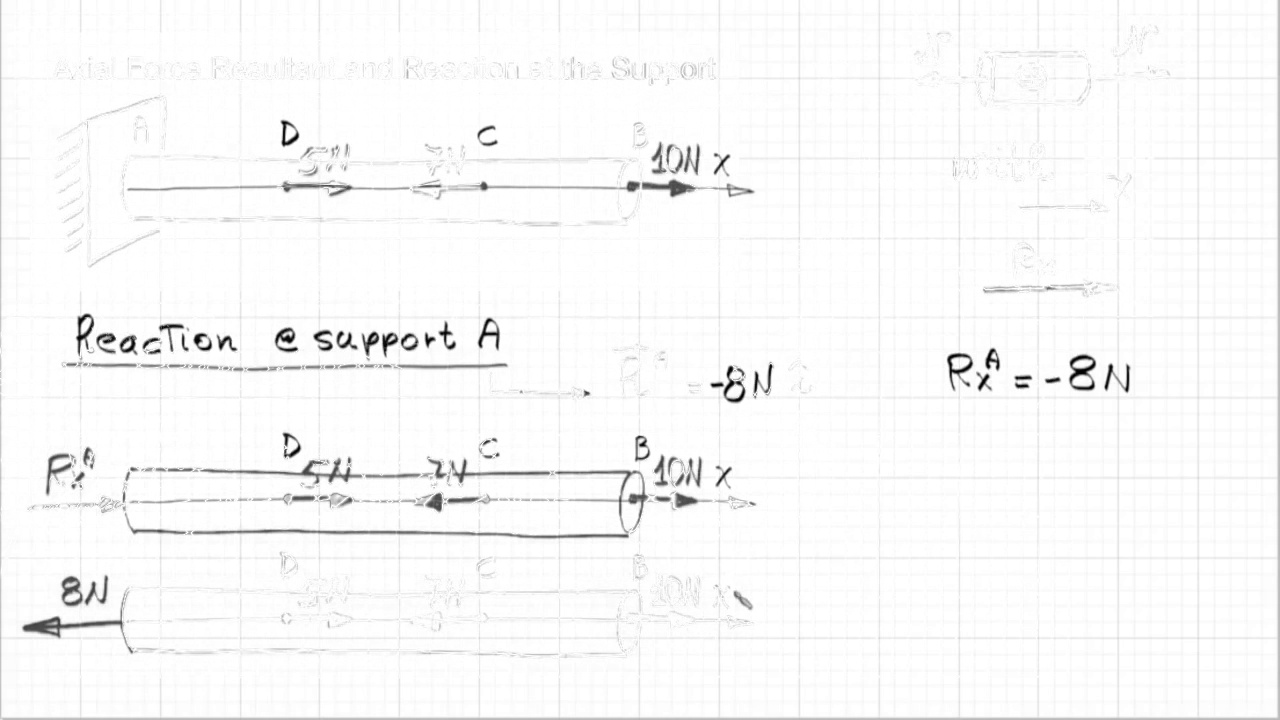 Axial Force Resultant and Reaction at the Support
N N
A D 5N 7N C B 10N x
write
x
Rx
Reaction @ support A
= -8N
RxA = -8N
RxA D 5N 7N C B 10N x
8N D 5N 7N C B 10N x